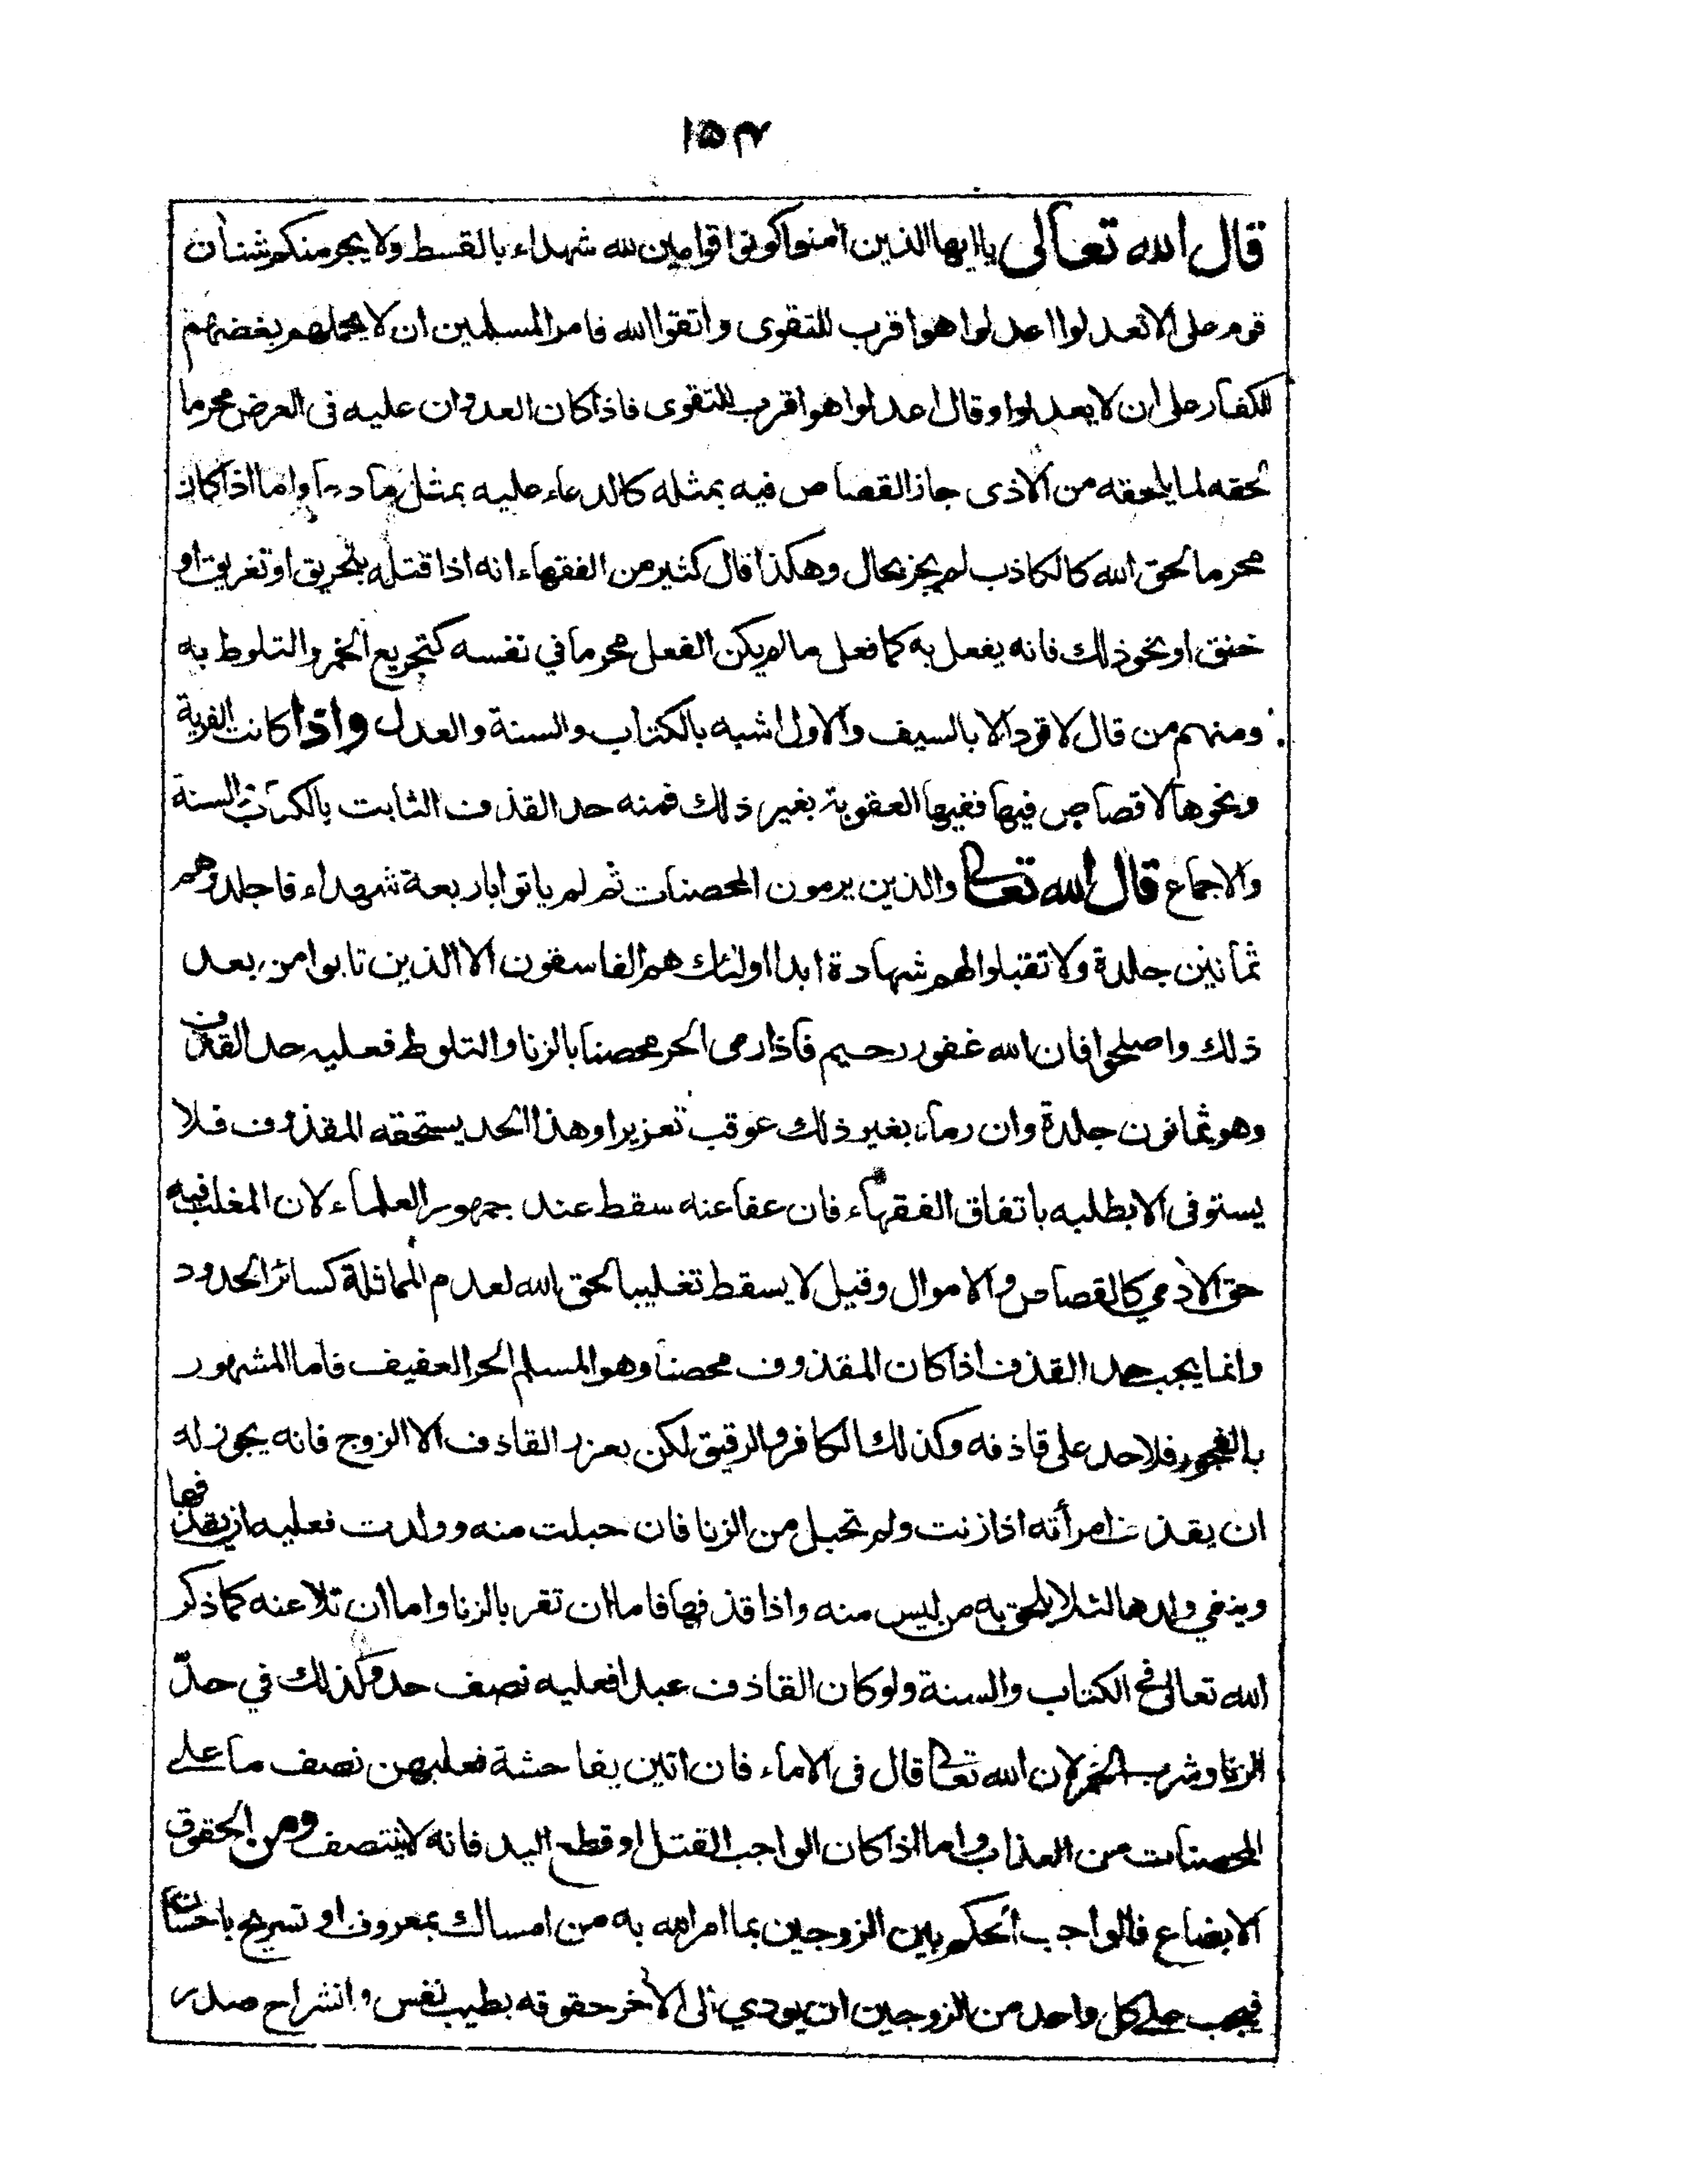 ۱۵۴
قال الله تعالى يا ايها الذين امنوا كونوا قوامين لله شهداء بالقسط ولا يجرمنكم شنأن
قوم على الا تعدلوا اعدلوا هو اقرب للتقوى واتقوا الله فامر المسلمين ان لا يحملهم بغضهم
للكفار على ان لا يعدلوا وقال اعدلوا هو اقرب للتقوى فاذا كان العدوان عليه فى العرض محرما
لحقه لما يلحقه من الاذى جاز القصاص فيه بمثله كالدعاء عليه بمثل ما دعا واما اذا كان
محرما لحق الله كالكاذب لم يجز بحال وهكذا قال كثير من الفقهاء انه اذا قتله بتحريق او تغريق او
خنق او نحو ذلك فانه يفعل به كما فعل مالم يكن الفعل محرما في نفسه كتجريع الخمر والتلوط به
ومنهم من قال لا قود الا بالسيف والاول اشبه بالكتاب والسنة والعدل واذا كانت الفرية
ونحوها لا قصاص فيها ففيها العقوبة بغير ذلك فمنه حد القذف الثابت بالكتاب والسنة
والاجماع قال الله تعالى والذين يرمون المحصنات ثم لم ياتوا باربعة شهداء فاجلدوهم
ثمانين جلدة ولا تقبلوا لهم شهادة ابدا اولئك هم الفاسقون الا الذين تابوا من بعد
ذلك واصلحوا فان الله غفور رحيم فاذا رمى الحر محصنا بالزنا والتلوط فعليه حد القذف
وهو ثمانون جلدة وان رماه بغير ذلك عوقب تعزيرا وهذا الحد يستحقه المقذوف فلا
يستوفى الا بطلبه باتفاق الفقهاء فان عفا عنه سقط عند جمهور العلماء لان المغلب فيه
حق الادمي كالقصاص والاموال وقيل لا يسقط تغليبا لحق الله لعدم المماثلة كسائر الحدود
وانما يجب حد القذف اذا كان المقذوف محصنا وهو المسلم الحر العفيف فاما المشهور
بالفجور فلا حد على قاذفه وكذلك الكافر والرقيق لكن يعزر القاذف الا الزوج فانه يجوز له
ان يقذف امرأته اذا زنت ولم تحبل من الزنا فان حبلت منه وولدت فعليه ان يقذفها
وينفي ولدها لئلا يلحق به من ليس منه واذا قذفها فاما ان تقر بالزنا واما ان تلاعنه كما ذكر
الله تعالى في الكتاب والسنة ولو كان القاذف عبدا فعليه نصف حد وكذلك في حدّ
الزنا وشرب الخمر لان الله تعالى قال فى الاماء فان اتين بفاحشة فعليهن نصف ما على
المحصنات من العذاب واما اذا كان الواجب القتل او قطع اليد فانه لا يتنصف ومن الحقوق
الابضاع فالواجب الحكم بين الزوجين بما امر الله به من امساك بمعروف او تسريح باحسان
فيجب على كل واحد من الزوجين ان يودي الى الاخر حقوقه بطيب نفس وانشراح صدر